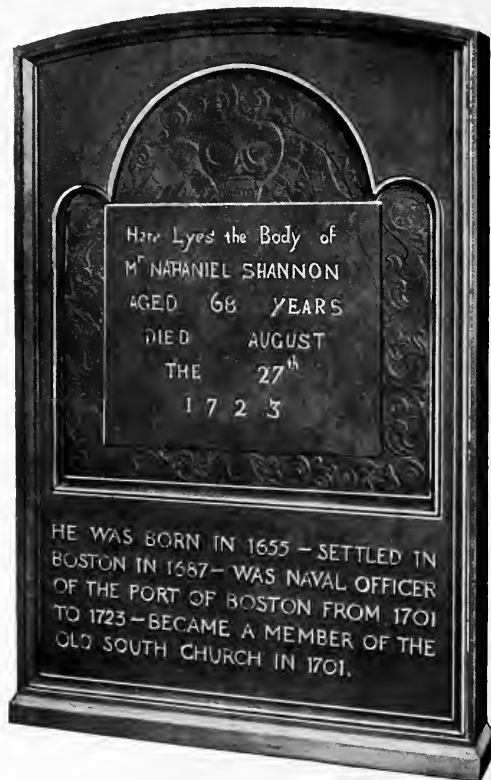 Here Lyes the Body of
Mr NATHANIEL SHANNON
AGED 68 YEARS
DIED AUGUST
THE 27th
1723
HE WAS BORN IN 1655 — SETTLED IN
BOSTON IN 1687 — WAS NAVAL OFFICER
OF THE PORT OF BOSTON FROM 1701
TO 1723 — BECAME A MEMBER OF THE
OLD SOUTH CHURCH IN 1701.